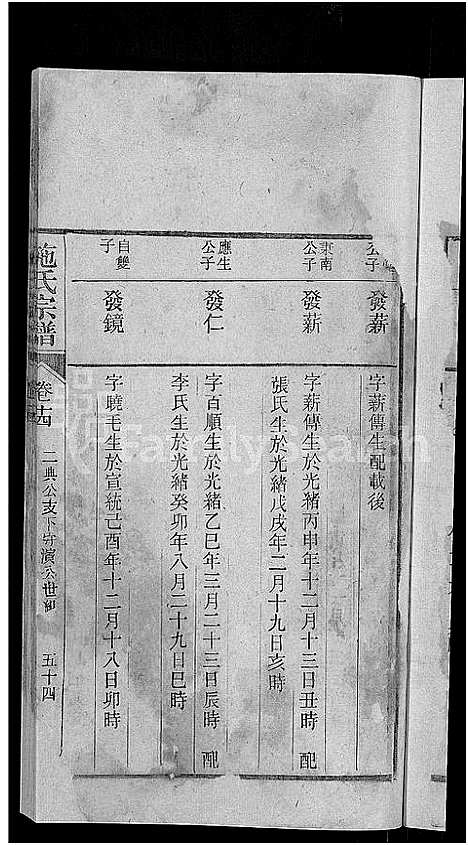 公子
發薪
字薪傳生配載後
秉南
公子
發薪
字薪傳生於光緒丙申年十二月十三日丑時 配
張氏生於光緒戊戌年二月十九日亥時
應生
公子
發仁
字百順生於光緒乙巳年三月二十三日辰時 配
李氏生於光緒癸卯年八月二十九日巳時
自雙
子
發鏡
字曉毛生於宣統己酉年十二月十八日卯時
施氏宗譜
卷十四
二典公支下守演公世
五十四
FamilySearch